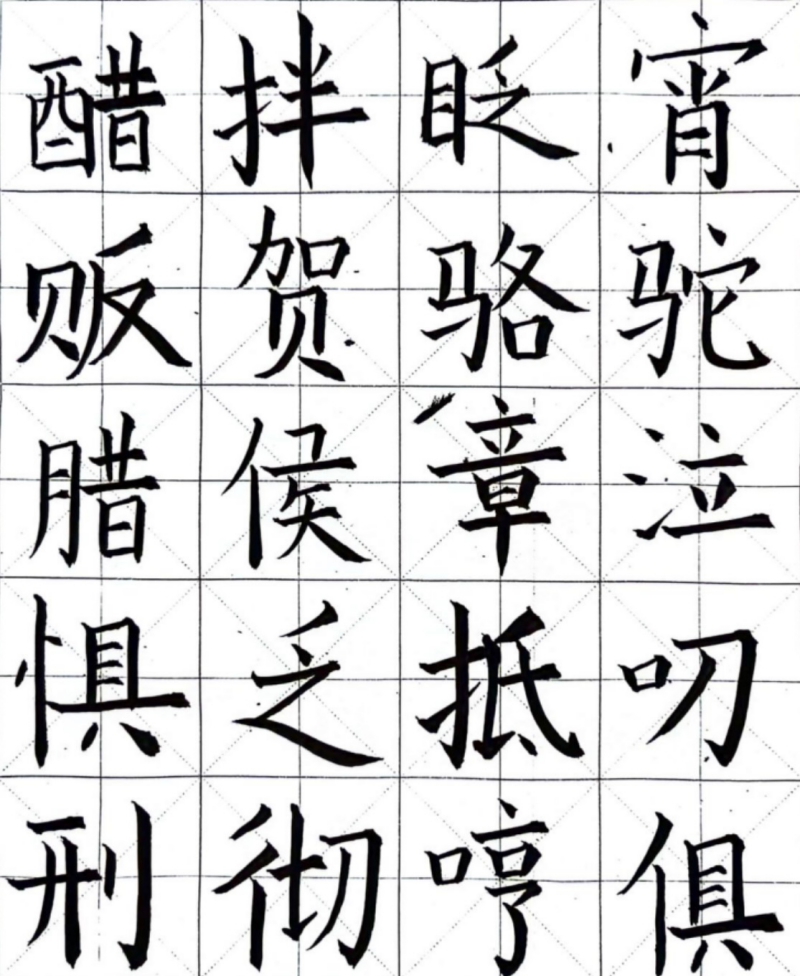 醋拌眨宵
贩贺骆驼
腊侯章泣
惧乏抵叨
刑彻哼俱